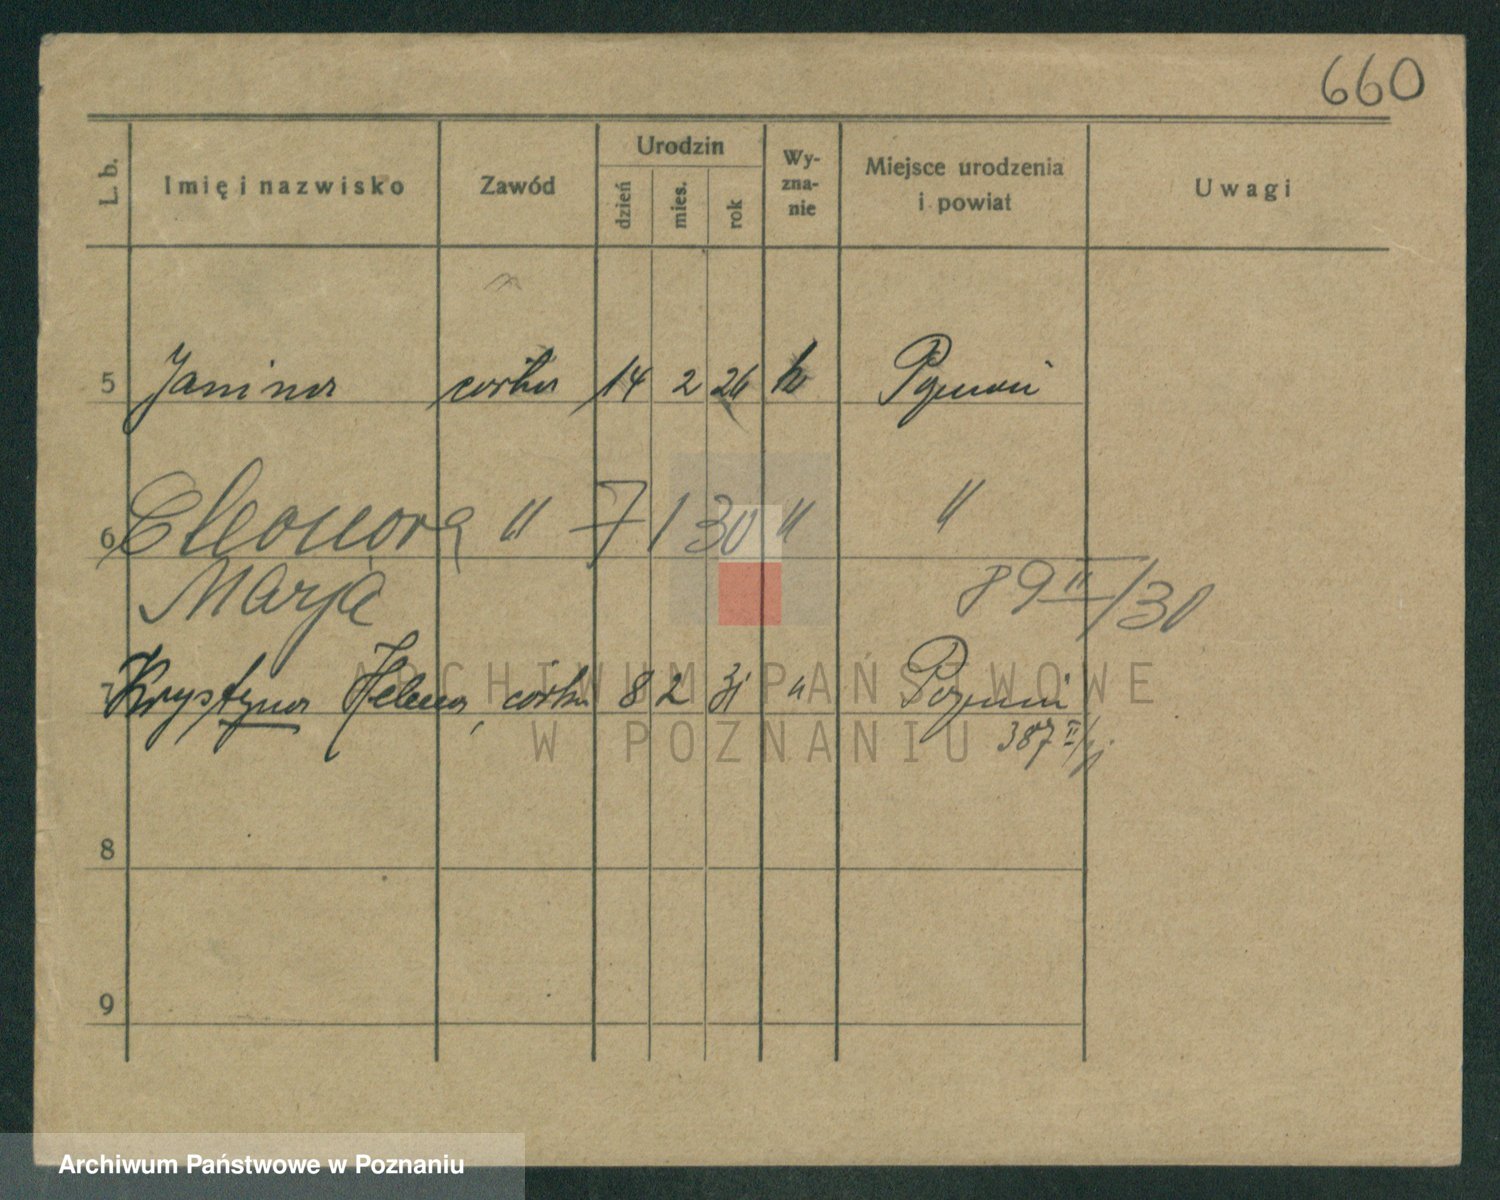 660
L. b. Imię i nazwisko Zawód Urodzin dzień mies. rok Wy-zna-nie Miejsce urodzenia i powiat Uwagi
5 Janina córka 14 2 26 k Poznań
6 Eleonora " 7 1 30 " "
Marja 89 II/30
7 Krystyna Helena, córka 8 2 31 " Poznań
387 II/31
8
9
ARCHIWUM PAŃSTWOWE
W POZNANIU
Archiwum Państwowe w Poznaniu